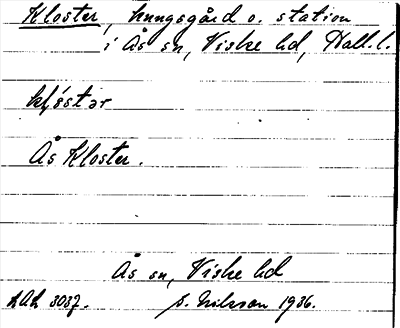 Kloster, kungsgård o. station
i Ås sn, Viske hd, Hall. l.
Ås Kloster.
Ås sn, Viske hd
LAL 3037. S. Nilsson 1936.